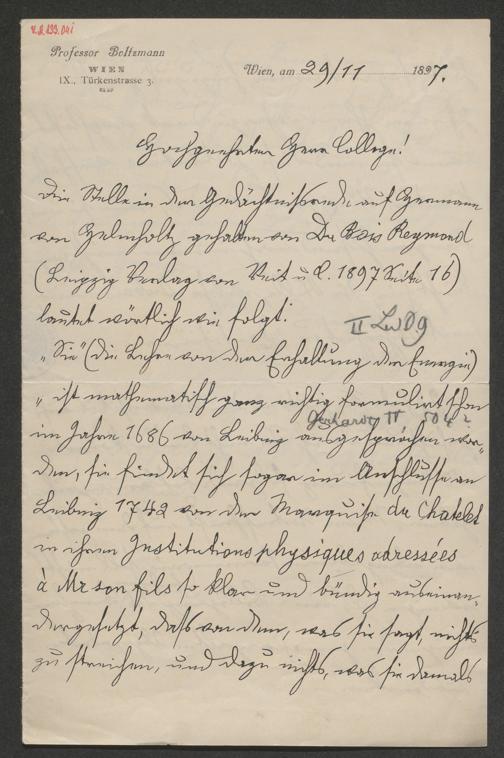 Professor Boltzmann
WIEN
IX., Türkenstrasse 3.
Wien, am 29/11 1897.
Hochgeehrter Herr College!
Die Stelle in der Gedächtnissrede auf Hermann
von Helmholtz gehalten von Du Bois Reymond
(Leipzig Verlag von Veit u C. 1897 Seite 16)
lautet wörtlich wie folgt:
II
„Sie“ (die Lehre von der Erhaltung der Energie)
„ist mathematisch ganz richtig formulirt schon
Gerhardt IV
im Jahre 1686 von Leibniz ausgesprochen wor-
den, sie findet sich sogar im Anschlusse an
Leibniz 1742 von der Marquise du Chatelet
in ihren Institutions physiques adressées
à Mr son fils so klar und bündig auseinan-
dergesetzt, dass von dem, was sie sagt, nichts
zu streichen, und dazu nichts, was sie damals